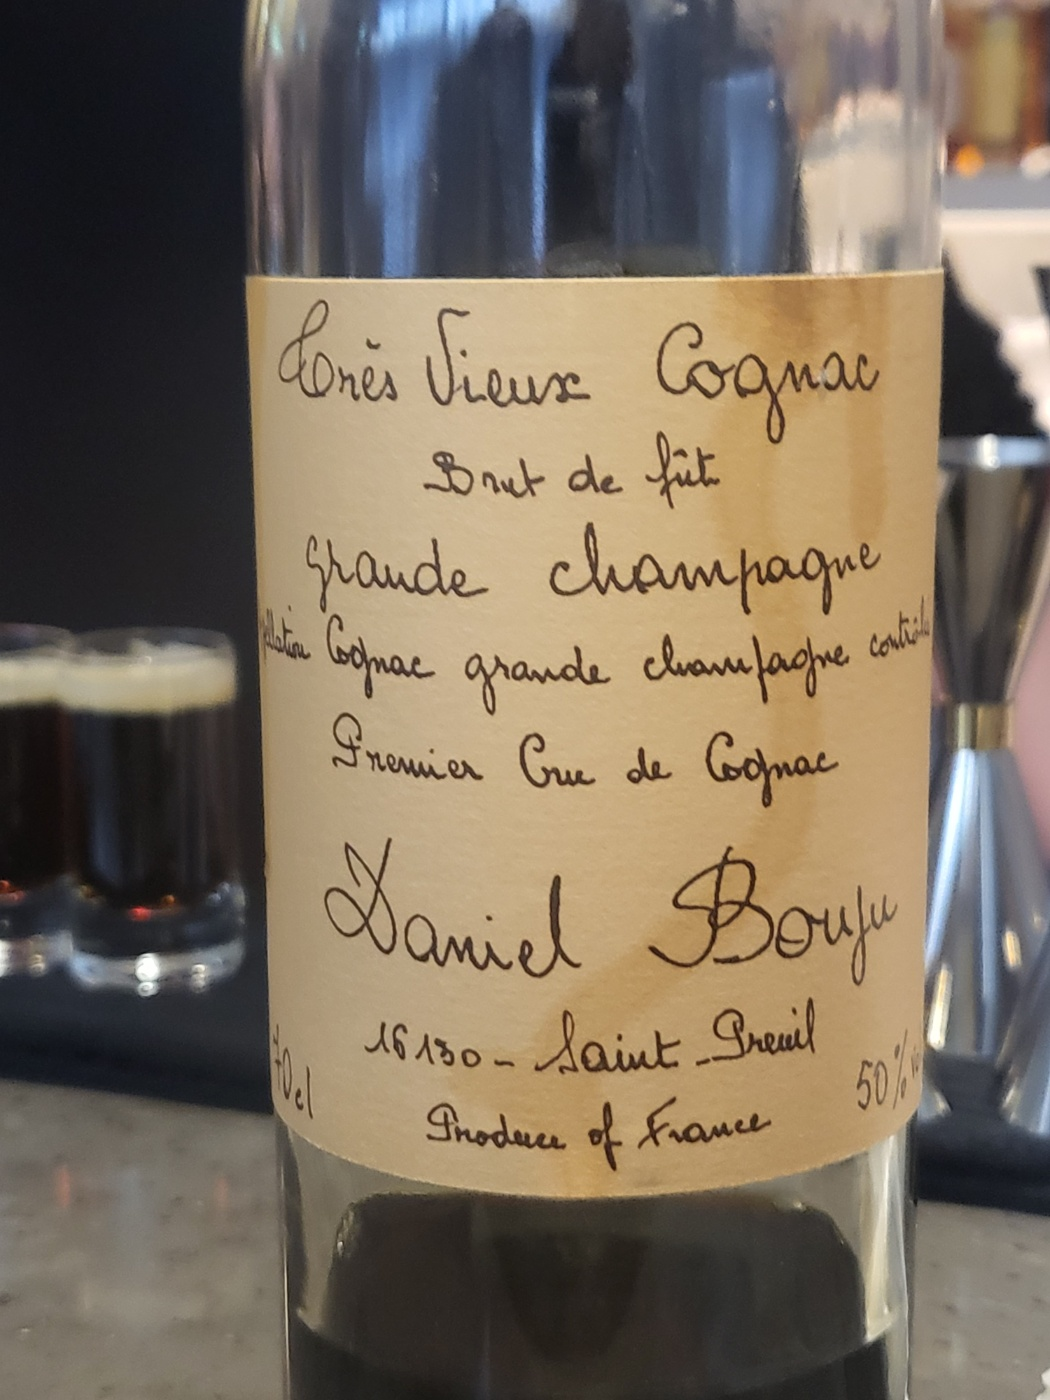 Très Vieux Cognac
Brut de fût
grande champagne
Cognac grande champagne
Premier Cru de Cognac
Daniel Bouju
16130 - Saint-Preuil
70cl 50%
Produce of France